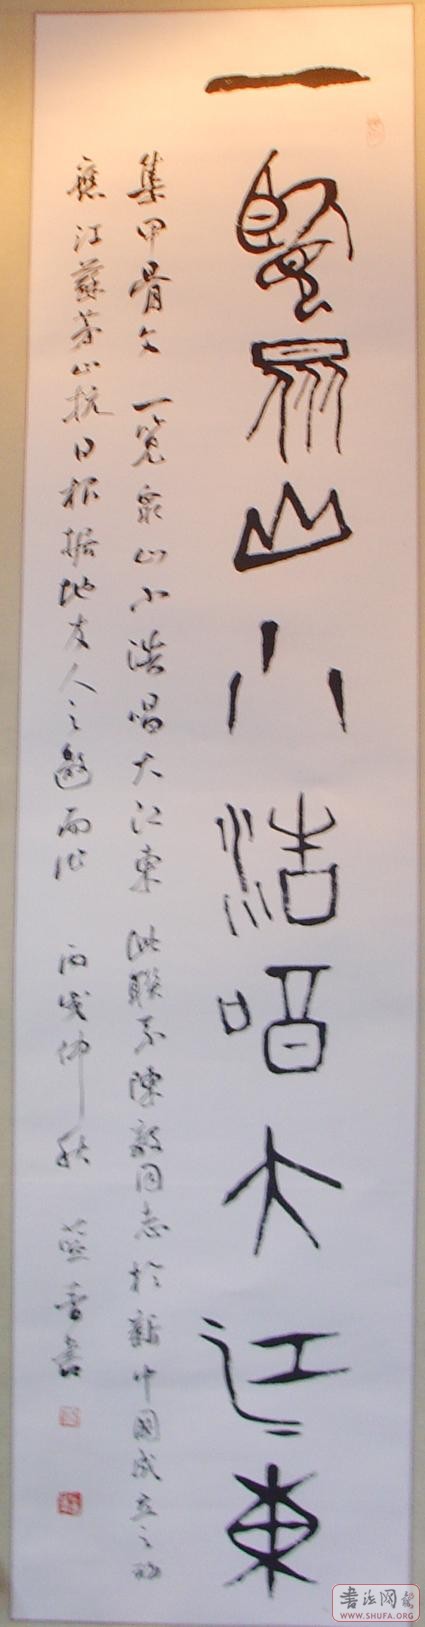 一览众山小浩唱大江东
集甲骨文 一览众山小浩唱大江东 此联系陈毅同志於新中國成立之初
应江苏茅山抗日根据地友人之邀而作 丙戌仲秋 蓝书
書法网
WWW.SHUFA.ORG